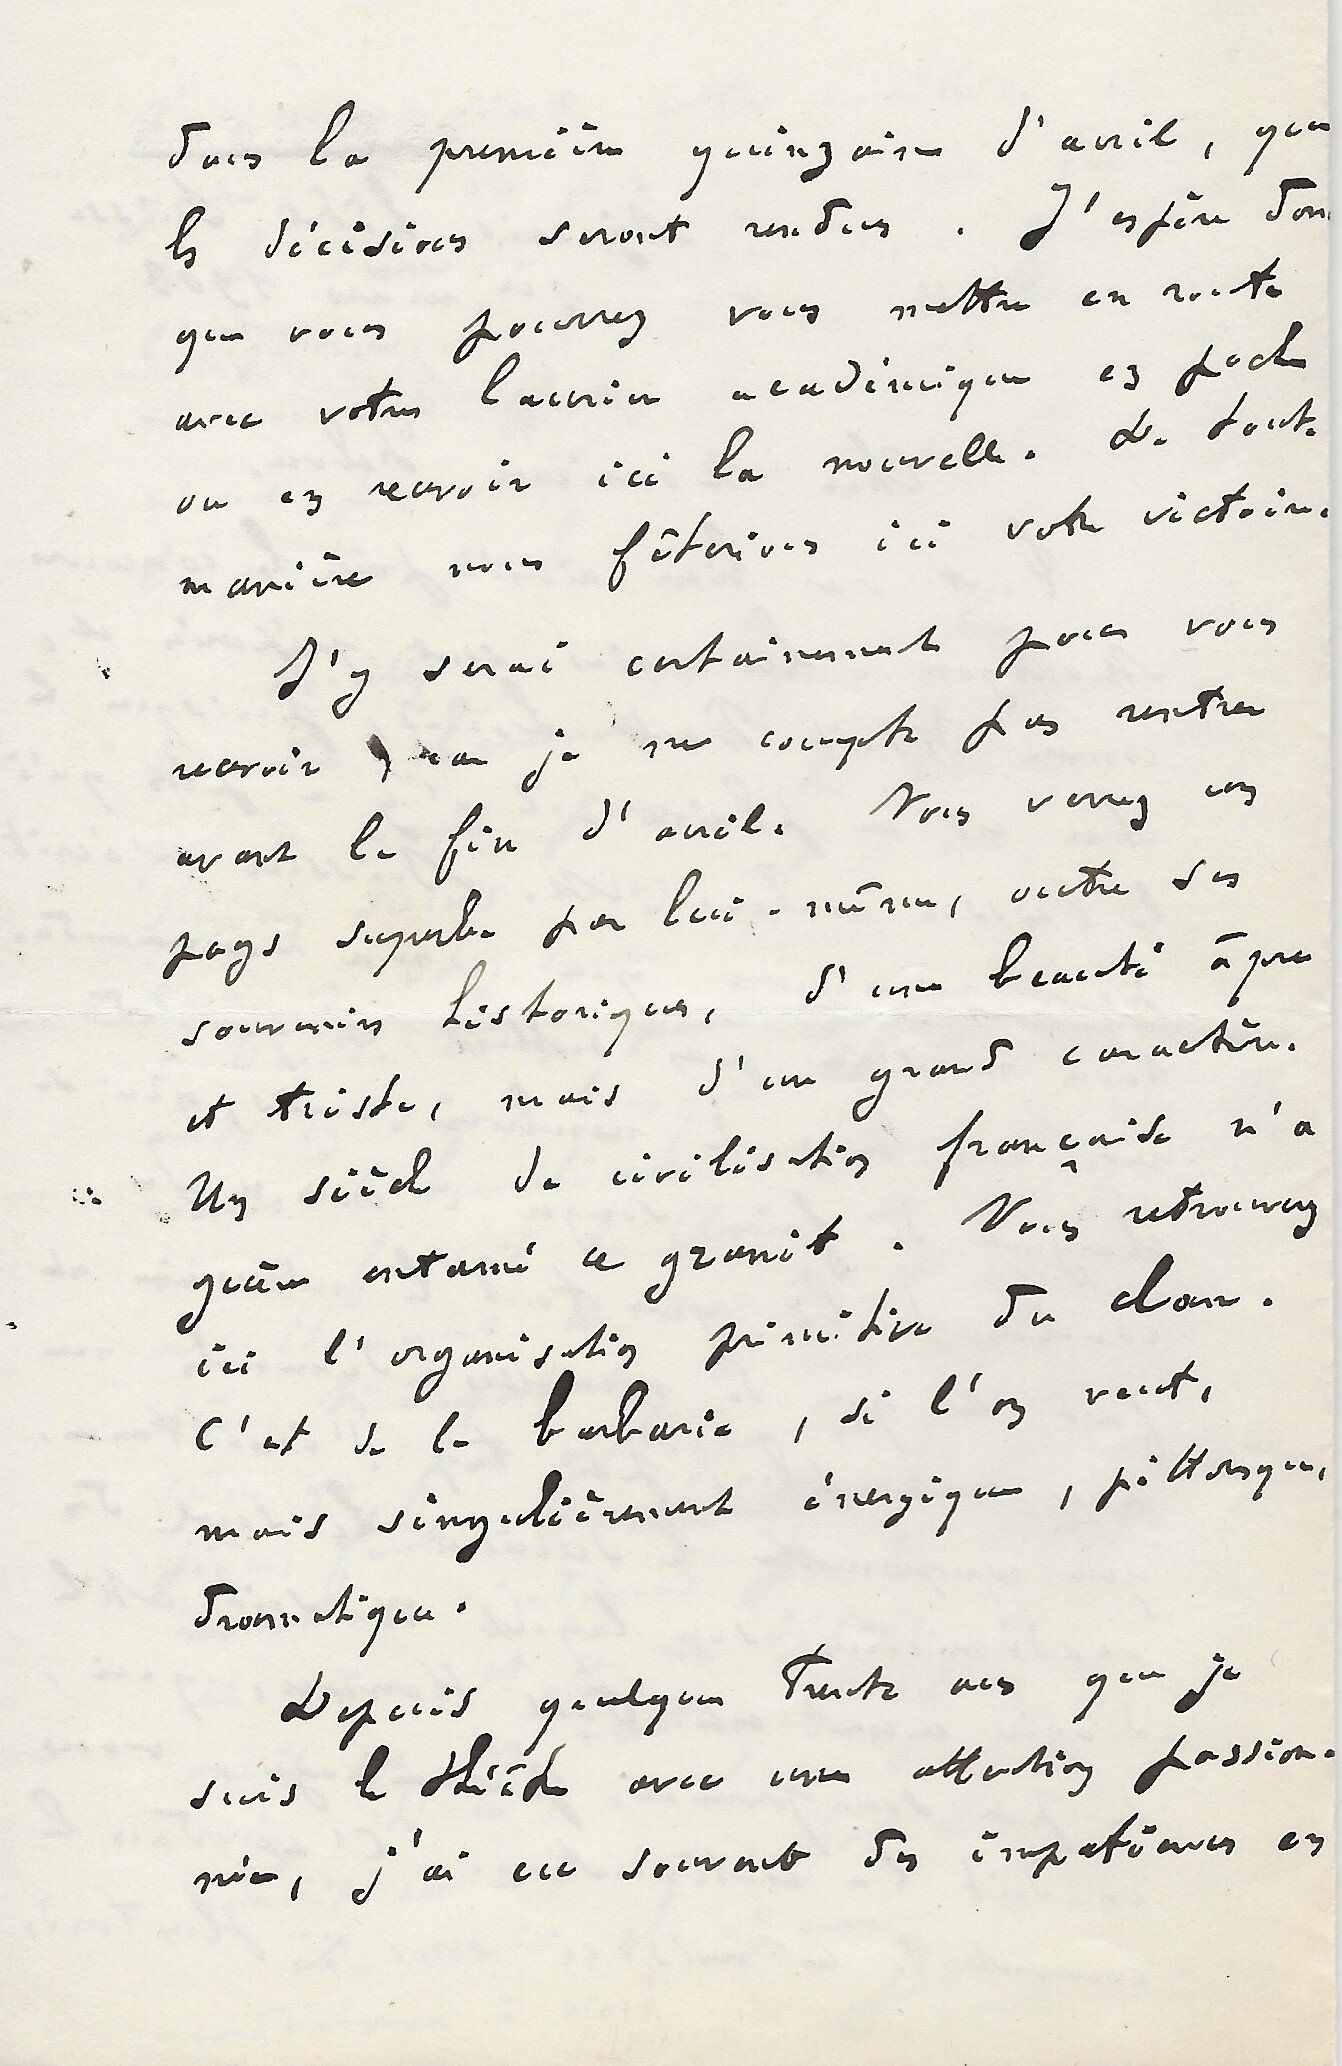 dans la première quinzaine d'avril, que
les décisions seront rendues. J'espère donc
que vous pourrez vous mettre en route
avec votre laurier académique en poche
ou en recevoir ici la nouvelle. De toute
manière nous fêterions ici votre victoire.
J'y serai certainement pour vous
recevoir, car je ne compte pas rentrer
avant la fin d'avril. Vous verrez un
pays superbe par lui-même, outre ses
souvenirs historiques, d'une beauté âpre
et triste, mais d'un grand caractère.
Un siècle de civilisation française n'a
guère entamé ce granit. Vous retrouverez
ici l'organisation primitive du clan.
C'est de la barbarie, si l'on veut,
mais singulièrement énergique, pittoresque,
dramatique.
Depuis quelque trente ans que je
suis le théâtre avec une attention passion-
née, j'ai eu souvent des impatiences en